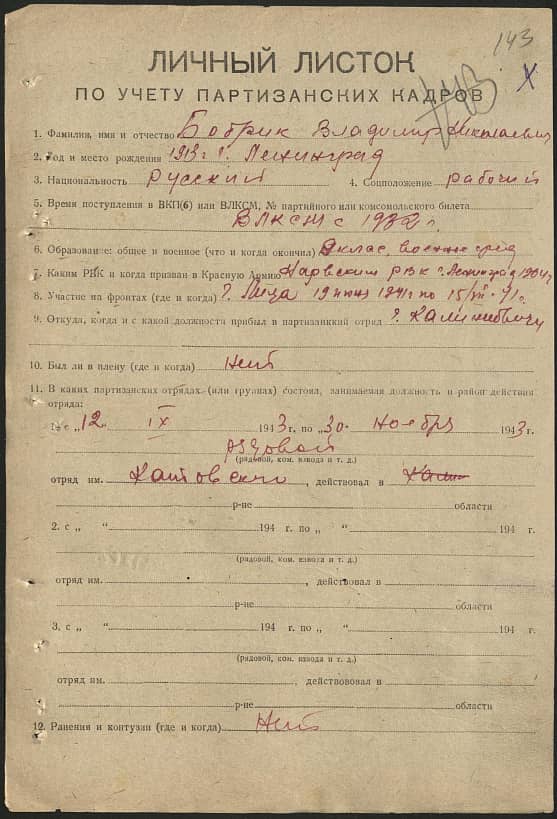 143
ЛИЧНЫЙ ЛИСТОК
ПО УЧЕТУ ПАРТИЗАНСКИХ КАДРОВ
1. Фамилия, имя и отчество Бобрик Владимир Николаевич
2. Год и место рождения 1913 г. г. Ленинград
3. Национальность Русский 4. Соцположение рабочий
5. Время поступления в ВКП(б) или ВЛКСМ, № партийного или комсомольского билета
ВЛКСМ с 1932 г.
6. Образование: общее и военное (что и когда окончил)
7. Каким РВК и когда призван в Красную Армию Нарвским РВК г. Ленинград
8. Участие на фронтах (где и когда) 19 июня 1941 г по 15/VII-41 г.
9. Откуда, когда и с какой должности прибыл в партизанкий отряд г.
10. Был ли в плену (где и когда) Нет
11. В каких партизанских отрядах (или группах) состоял, занимаемая должность и район действия
отряда:
1. с „12" IX 1943 г. по „30" ноября 1943 г.
рядовой
(рядовой, ком. взвода и т. д.)
отряд им. Катовского, действовал в
р-не области
2. с „ " 194 г. по „ " 194 г.
(рядовой, ком. взвода и т. д.)
отряд им. , действовал в
р-не области
3. с „ " 194 г. по „ " 194 г.
(рядовой, ком. взвода и т. д.)
отряд им. , действововал в
р-не области
12. Ранения и контузии (где и когда) Нет